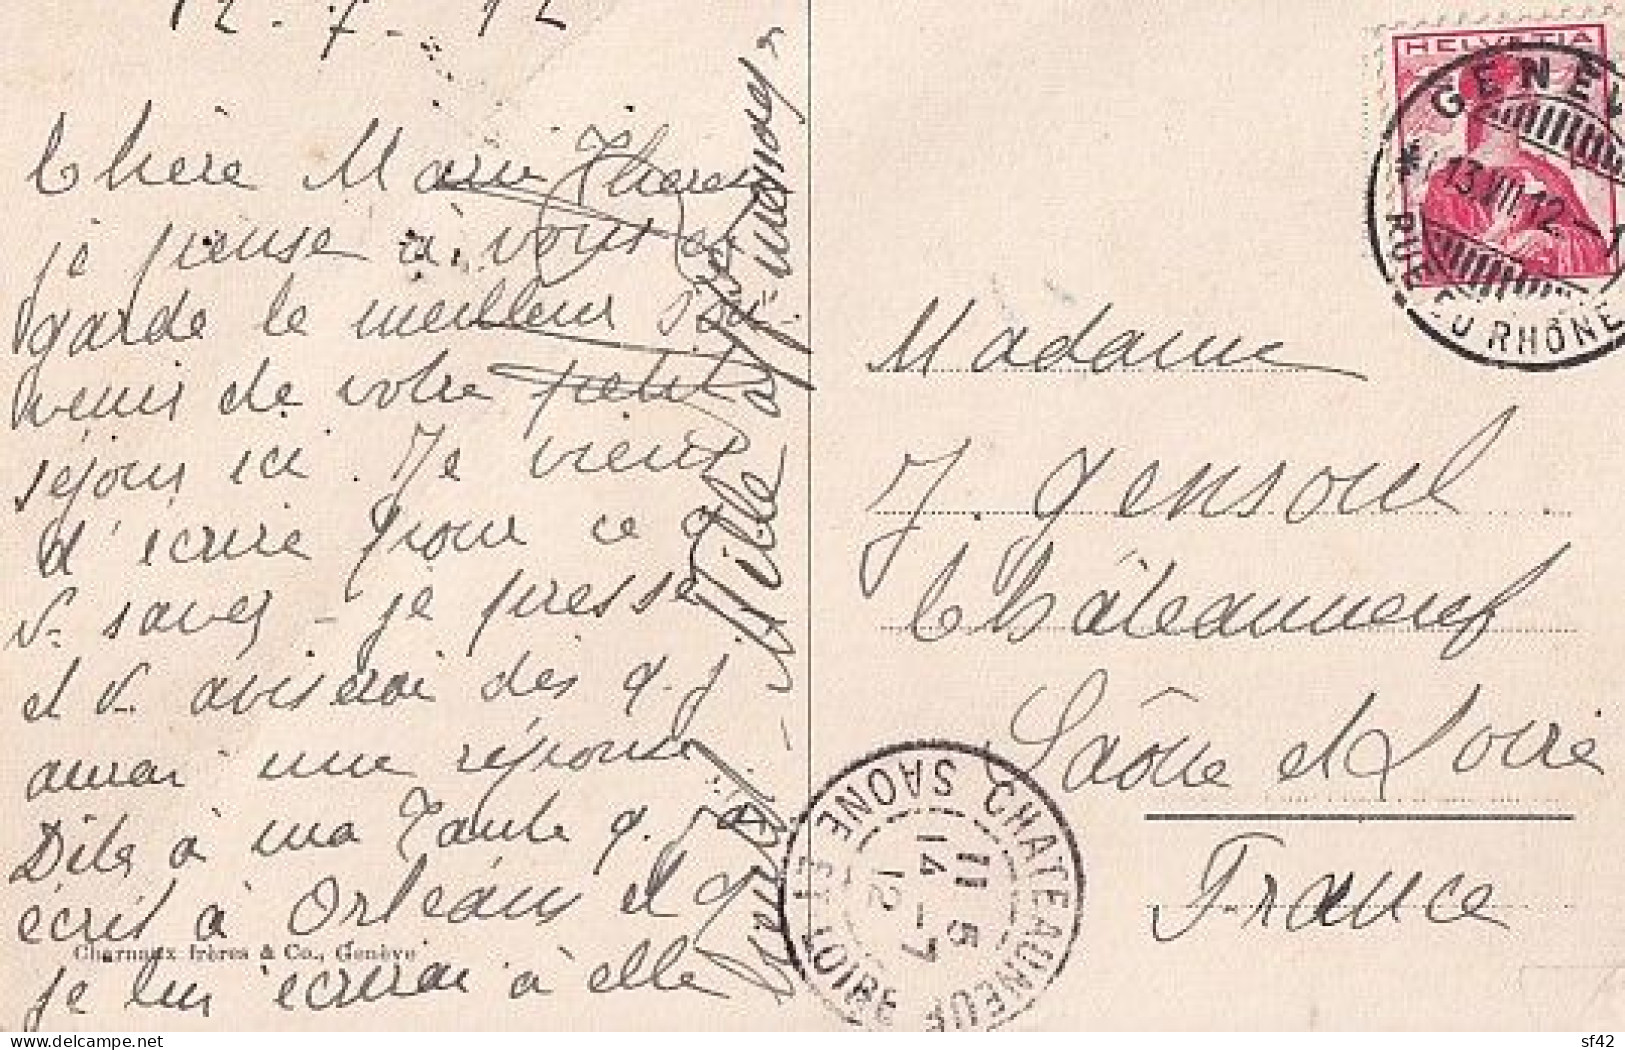 12 - 7 - 12
Chère Marie Thérèse
je pense à vous et
garde le meilleur sou-
venir de votre petit
séjour ici. Je viens
d'écrire pour ce q
v. savez - je presse
et v. aviserai dès q. j
aurai une réponse
Dites à ma Tante q. j'ai
écrit à Orléans et q
je lui écrirai à elle
Charnaux frères & Co., Genève
HELVETIA
GENÈV
13.VII.12.-1
RUE DU RHÔNE
Madame
J. Gensoul
Châteauneuf
Saône et Loire
France
CHATEAUNEUF
11 5
14 -7
12
SAONE ET LOIRE
delcampe.net
sf42